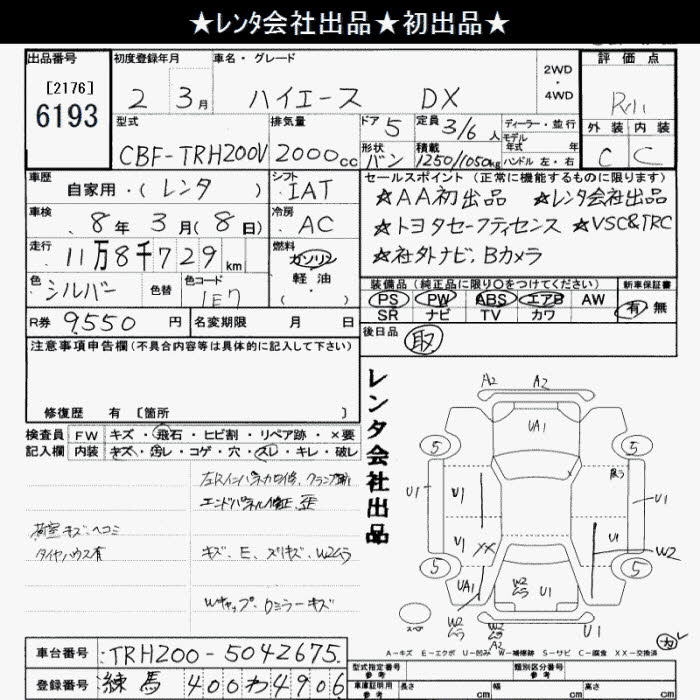 ★レンタ会社出品★初出品★
出品番号 初度登録年月 車名・グレード 評価点
[2176]
6193
2 3月 ハイエース DX
2WD
・
4WD
外装 内装
C C
型式 排気量 ドア 定員 ディーラー・並行
CBF-TRH200V 2000cc 5 3/6人
モデル年式 年式
形状 積載 ハンドル 左・右
バン 1250/1050kg
車歴 自家用・(レンタ)
シフト IAT
車検 8年3月(8日)
冷房 AC
走行 11万8千729km
燃料 ガソリン
軽油
色 シルバー 色替 色コード 1E7
R券 9,550円 名変期限 月 日
セールスポイント (正常に機能するものに限ります)
★AA初出品 ★レンタ会社出品
★トヨタセーフティセンス ★VSC&TRC
★社外ナビ、Bカメラ
装備品 (純正品に限り○をつけてください) 新車保証書
PS PW ABS エアB AW 有・無
SR ナビ TV カワ
後日品 取
注意事項申告欄(不具合内容等は具体的に記入して下さい)
修復歴 有 [箇所 ]
検査員 FW キズ・飛石・ヒビ割・リペア跡・×要
記入欄 内装 キズ・汚レ・コゲ・穴・スレ・キレ・破レ
エンドパネル修正、歪
荷室キズ、ヘコミ
タイヤハウス有
キズ、E、スリキズ、W2ムラ
Wキャップ、Dミラーキズ
レンタ会社出品
A2 A2
UA1
5 5
U1 U1 U1
U1 XX W2
5 5
UA1 W2ムラ U1
W2ムラ W2ムラ
A2
スペア
A-キズ E-エクボ U-凹み W-補修跡 S-サビ C-腐食 XX-交換済
車台番号 TRH200-5042675
登録番号 練馬 400わ4906
型式指定番号 参考 類別区分番号 参考
車庫証明用 参考 長さ cm 幅 cm 高さ cm